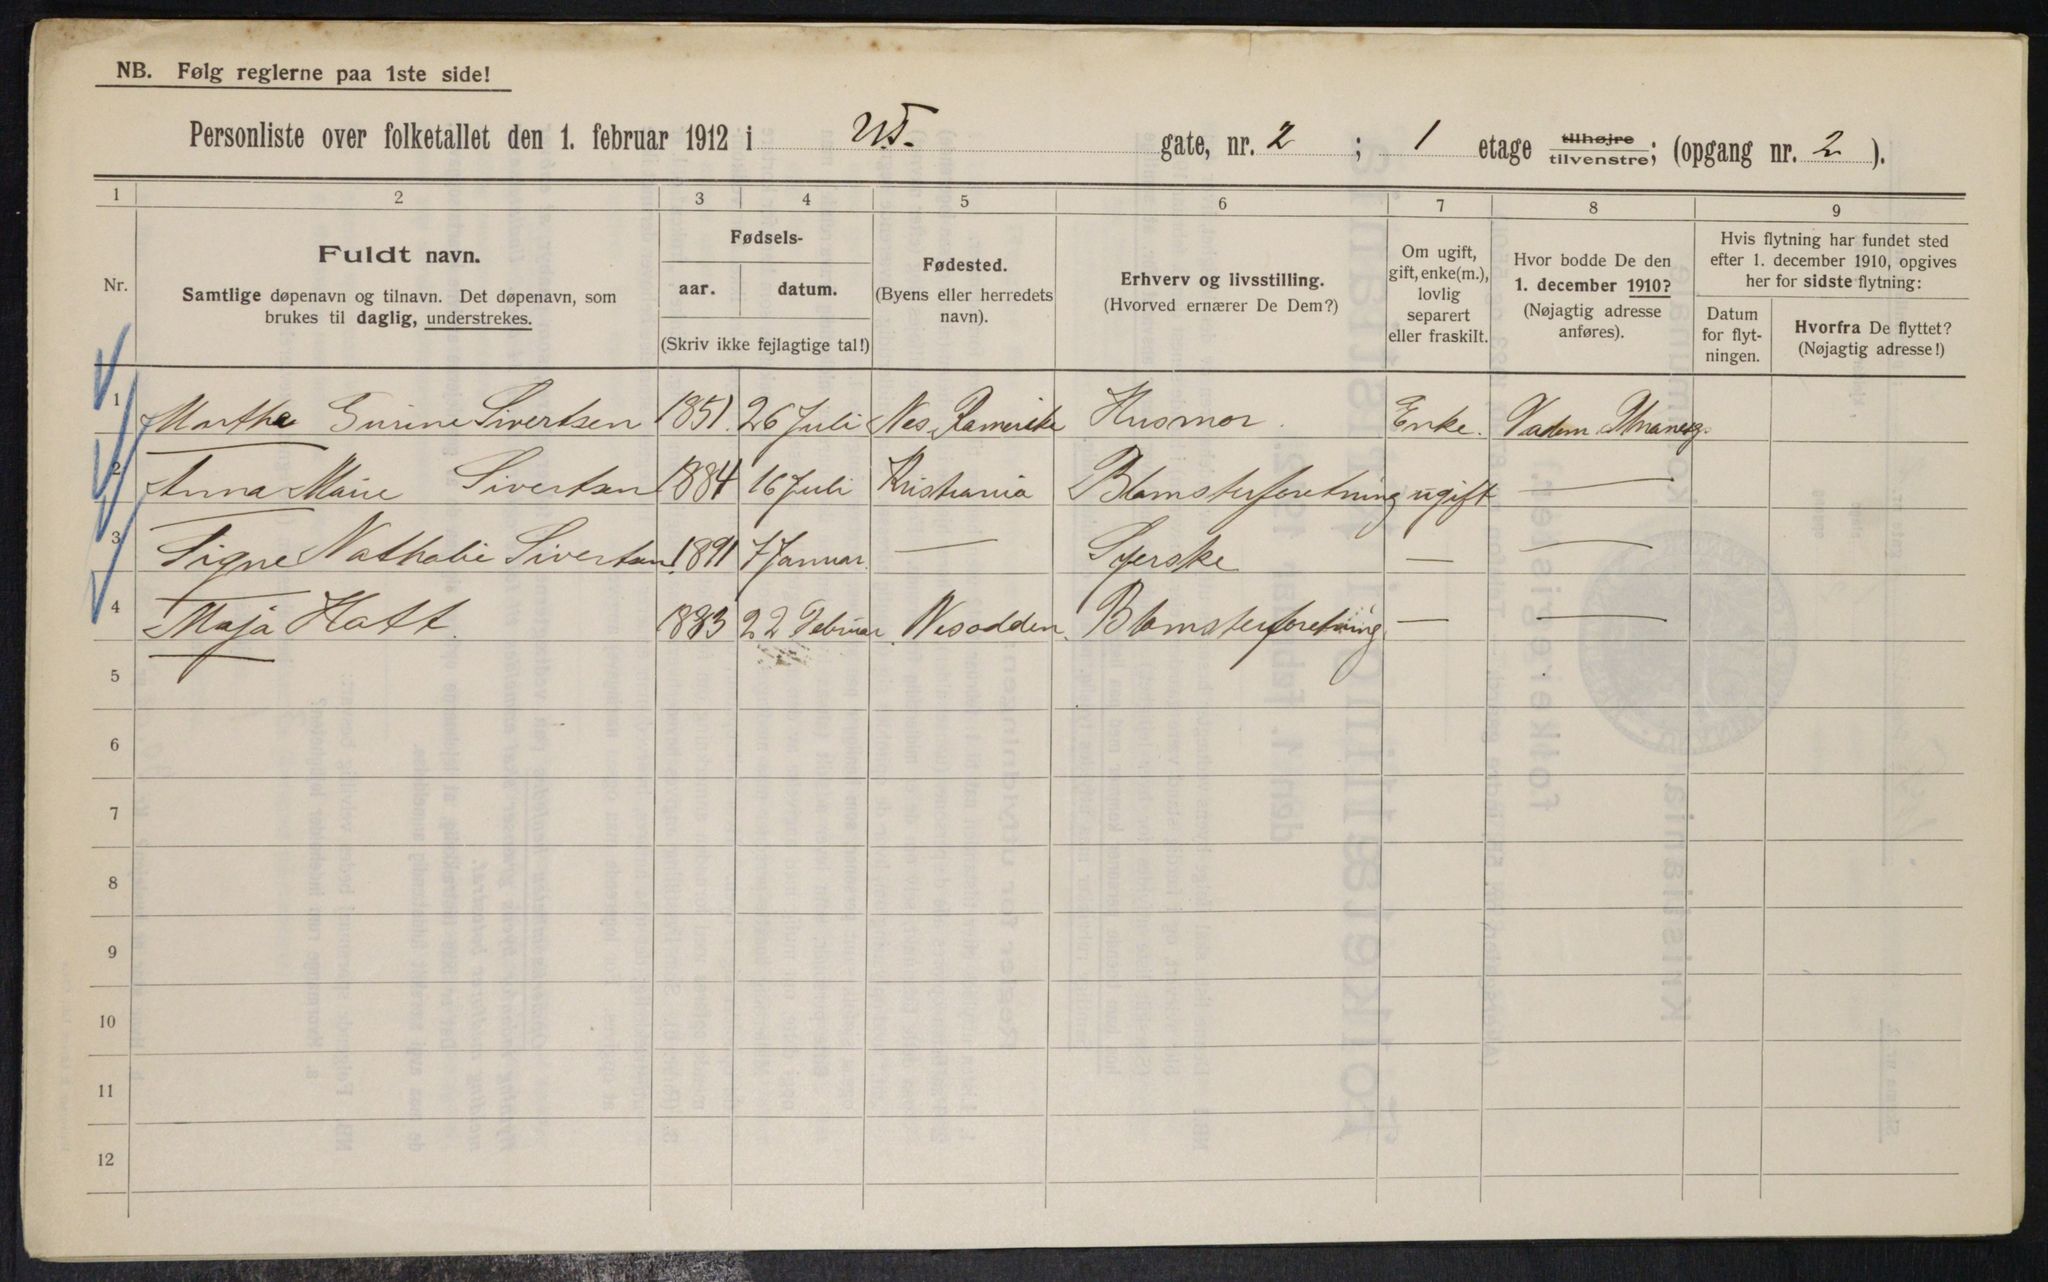 NB. Følg reglerne paa 1ste side!
Personliste over folketallet den 1. februar 1912 i Ul. gate, nr. 2 ; 1 etage tilhøjre tilvenstre; (opgang nr. 2 ).
1 2 3 4 5 6 7 8 9
Nr.
Fuldt navn.
Samtlige døpenavn og tilnavn. Det døpenavn, som
brukes til daglig, understrekes.
Fødsels-
aar. datum.
(Skriv ikke fejlagtige tal!)
Fødested.
(Byens eller herredets
navn).
Erhverv og livsstilling.
(Hvorved ernærer De Dem?)
Om ugift,
gift, enke(m.),
lovlig
separert
eller fraskilt.
Hvor bodde De den
1. december 1910?
(Nøjagtig adresse
anføres).
Hvis flytning har fundet sted
efter 1. december 1910, opgives
her for sidste flytning:
Datum
for flyt-
ningen.
Hvorfra De flyttet?
(Nøjagtig adresse!)
1 Marthe Gurine Sivertsen 1851 26 Juli Nes Romerike Husmor. Enke.
2 Anna Marie Sivertsen 1884 16 Juli Kristiania Blomsterforetning ugift —
3 Signe Nathalie Sivertsen 1891 7 Januar. — Syerske — —
4 Maja Hatt. 1883 22 Februar Nesodden. Blomsterforetning. — —
5
6
7
8
9
10
11
12